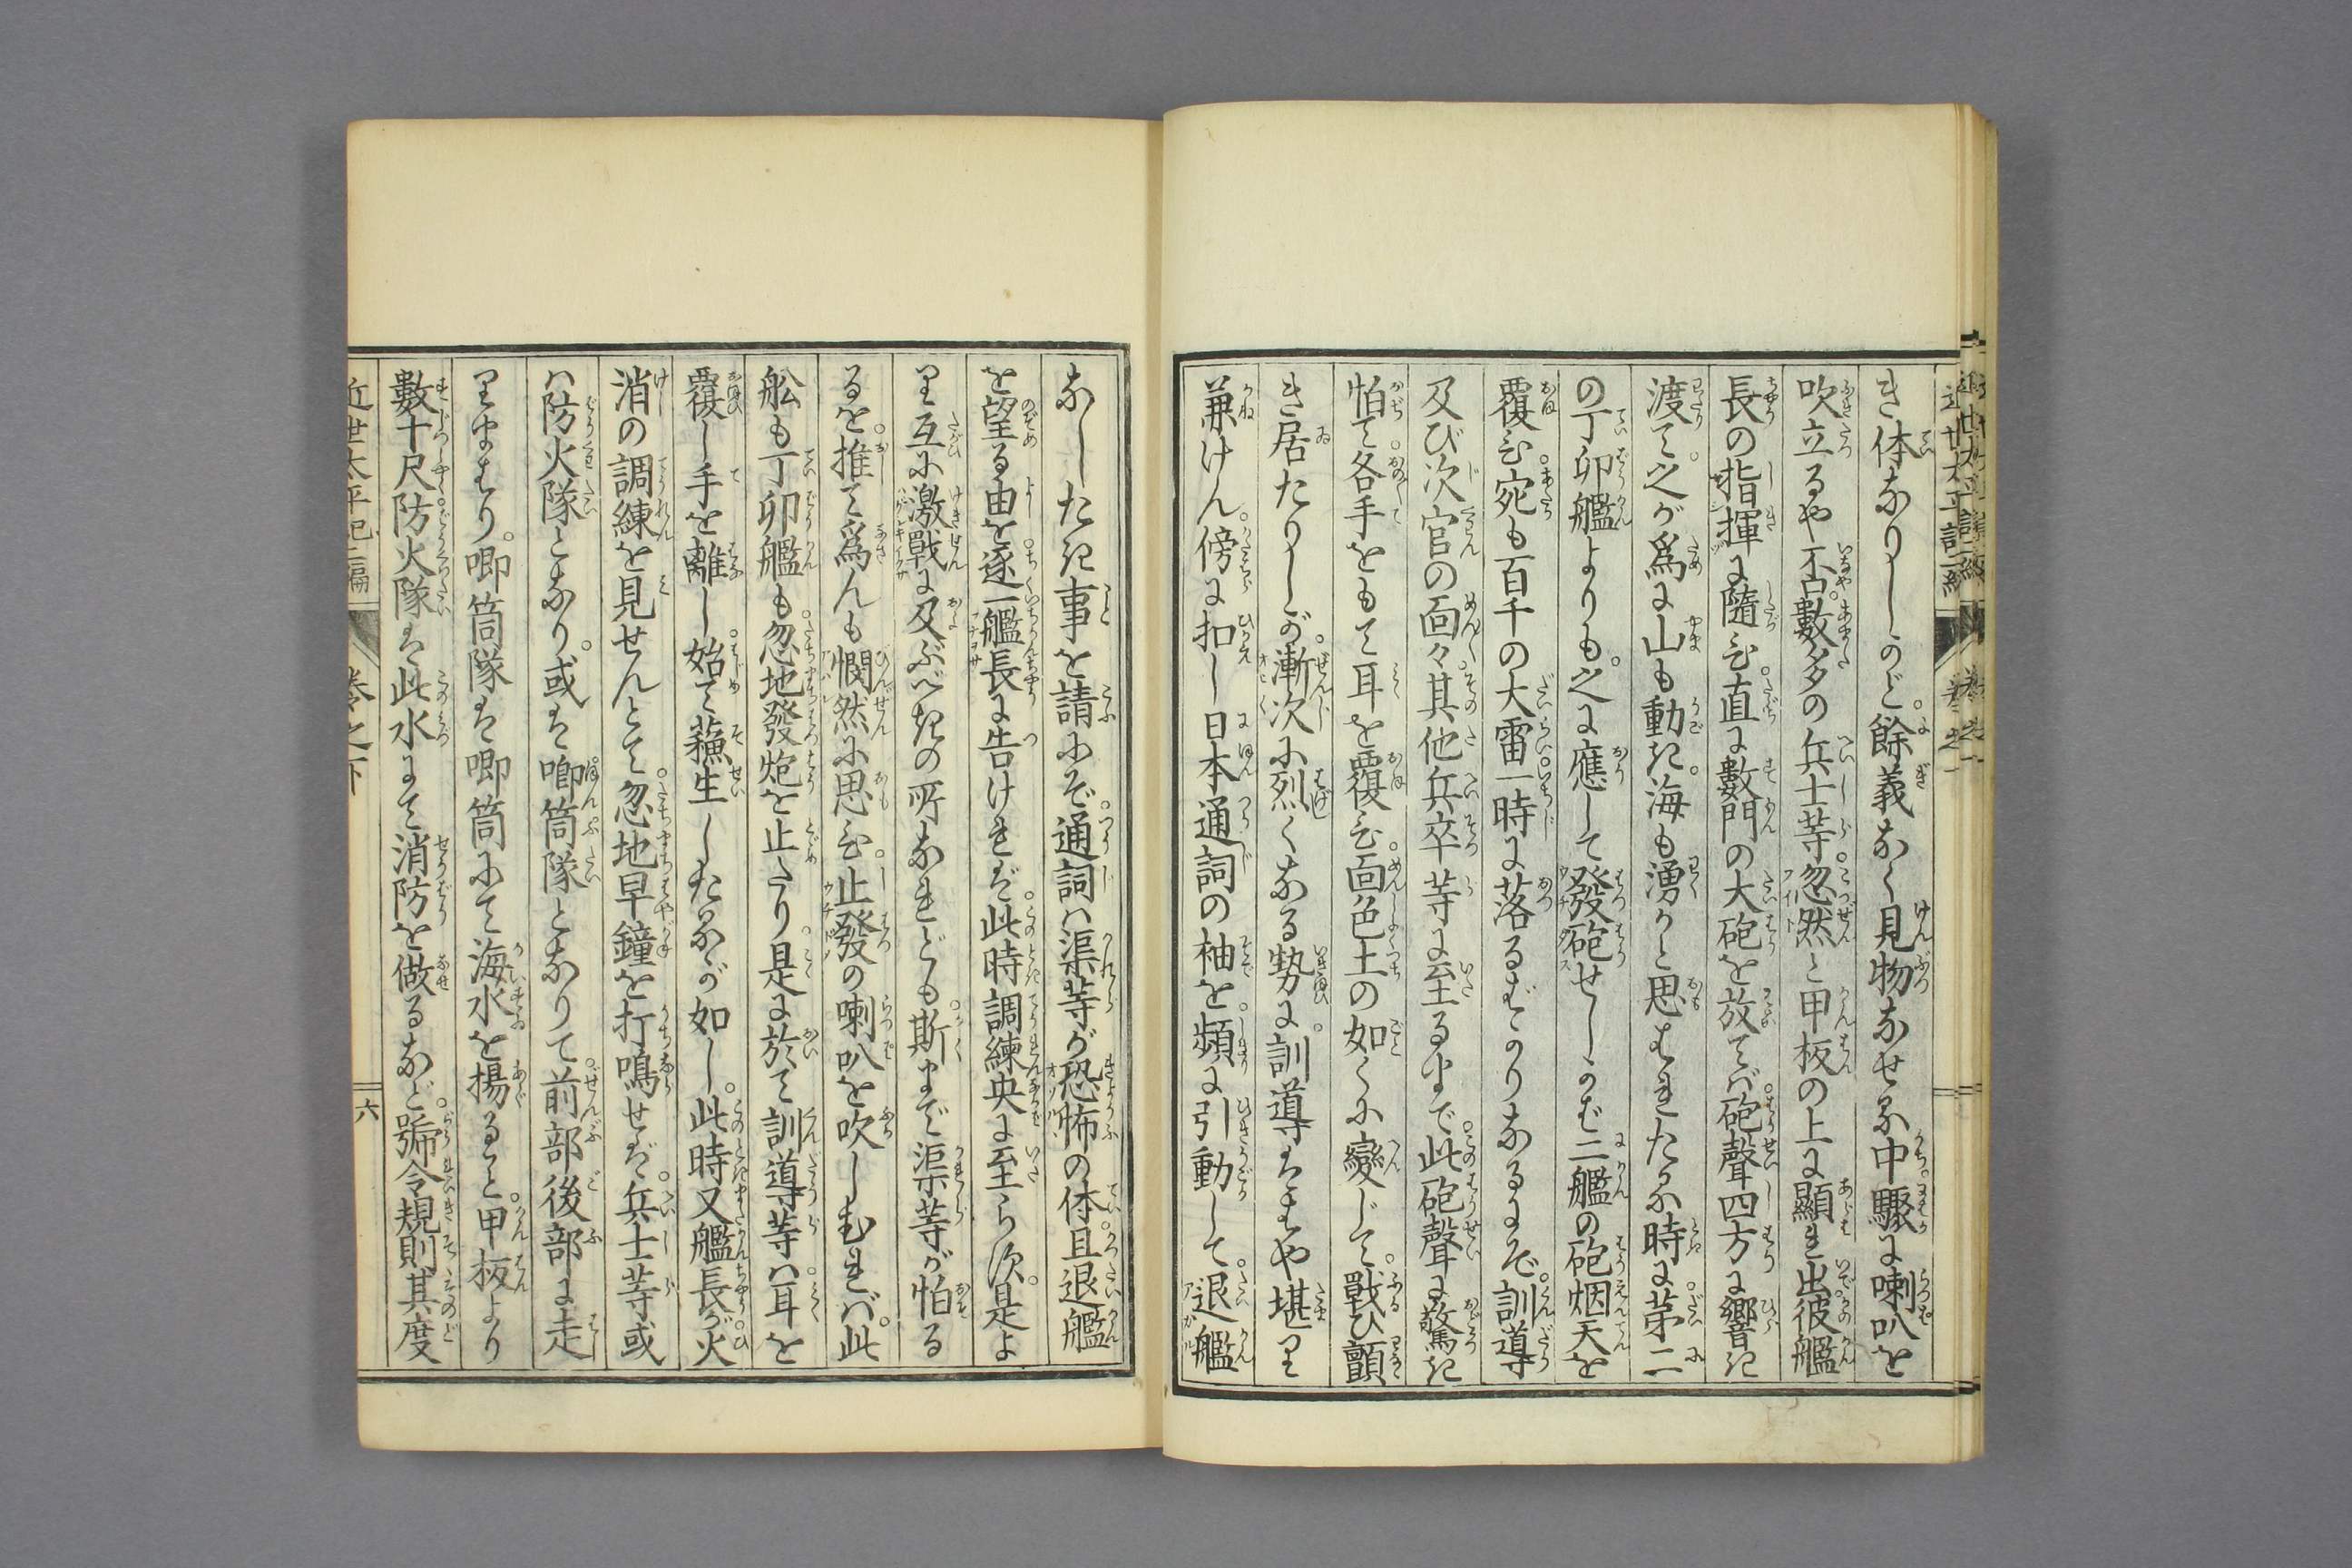 き体なりしかど。餘義なく見物なせる中驟に喇叭を
吹立るや不否。數多の兵士等。忽然と甲板の上に顯れ出。彼艦
長の指揮に隨ひ。直に數門の大砲を放てば。砲聲四方に響き
渡て。之が爲に山も動き。海も湧かと思はれたる時に。苐二
の丁卯艦よりも。之に應して發砲せしかば二艦の砲烟天を
覆ひ。宛も百千の大雷。一時に落るばかりなるにぞ。訓導
及び次官の面々。其他兵卒等に至るまで。此砲聲に驚き
怕て。各手をもて耳を覆ひ。面色土の如くに變じて。戰ひ顫
き居たりしが。漸次に烈くなる勢に。訓導はもはや堪り
兼けん。傍に扣し日本通詞の袖を。頻に引動して。退艦
なしたき事を請ふにぞ。通詞ハ渠等が恐怖の体。且退艦
を望る由を。逐一艦長に告ければ。此時調練央に至らず。是よ
り互に激戰に及ぶべきの所なれども。斯まで渠等が怕る
るを。推て爲んも憫然に思ひ。止發の喇叭を吹しむれば。此
舩も丁卯艦も。忽地發炮を止たり。是に於て訓導等ハ。耳を
覆し手を離し。始て蘓生したるが如し。此時又艦長が。火
消の調練を見せんとて。忽地早鐘を打鳴せば。兵士等或
ハ防火隊となり。或は喞筒隊となりて。前部後部に走
りまはり。喞筒隊は喞筒にて海水を揚ると。甲板より
數十尺。防火隊は此水にて消防を做るなど。號令規則其度
近世太平記二編 巻之下 六